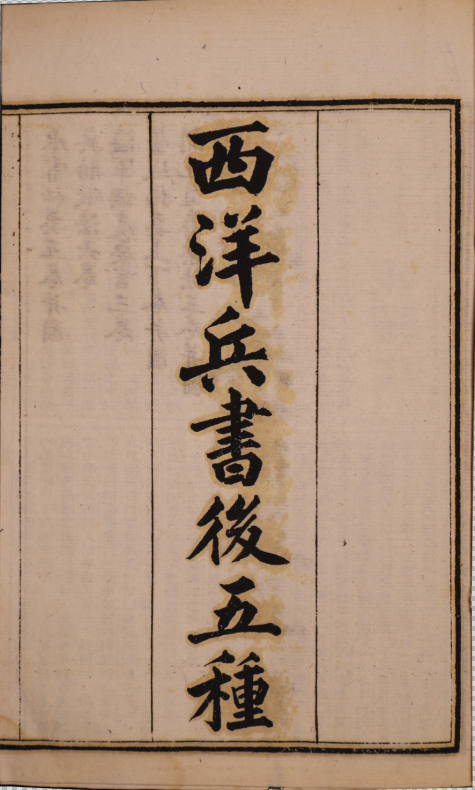 西洋兵書後五種